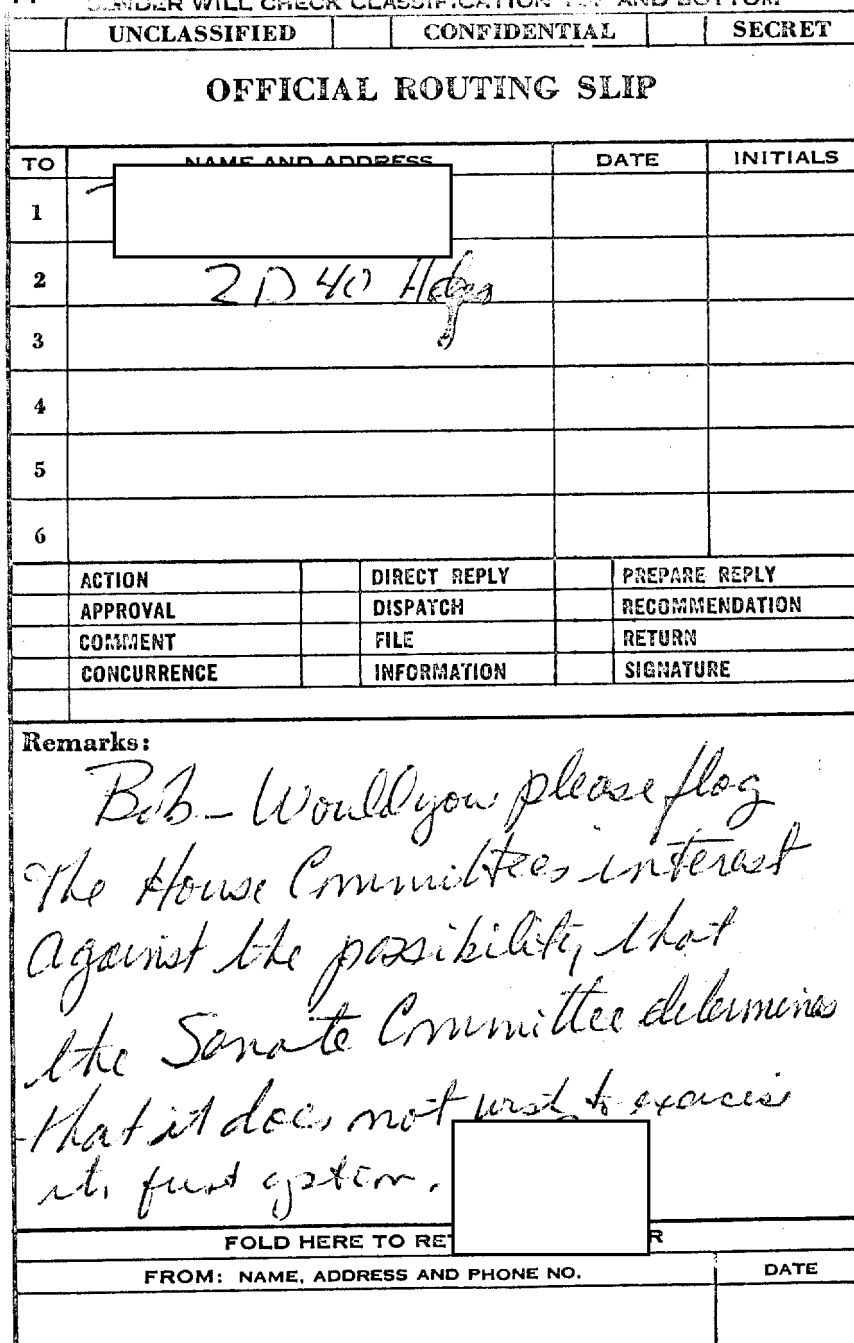 SENDER WILL CHECK CLASSIFICATION TOP AND BOTTOM
UNCLASSIFIED CONFIDENTIAL SECRET
OFFICIAL ROUTING SLIP
TO NAME AND ADDRESS DATE INITIALS
1
2 2D40 Hdqs
3
4
5
6
ACTION DIRECT REPLY PREPARE REPLY
APPROVAL DISPATCH RECOMMENDATION
COMMENT FILE RETURN
CONCURRENCE INFORMATION SIGNATURE
Remarks:
Bob - Would you please flag
the House Committee's interest
against the possibility that
the Senate Committee determines
that it does not wish to exercise
its first option.
FOLD HERE TO RET R
FROM: NAME, ADDRESS AND PHONE NO. DATE